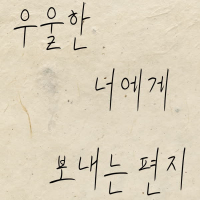 우울한
너에게
보내는 편지